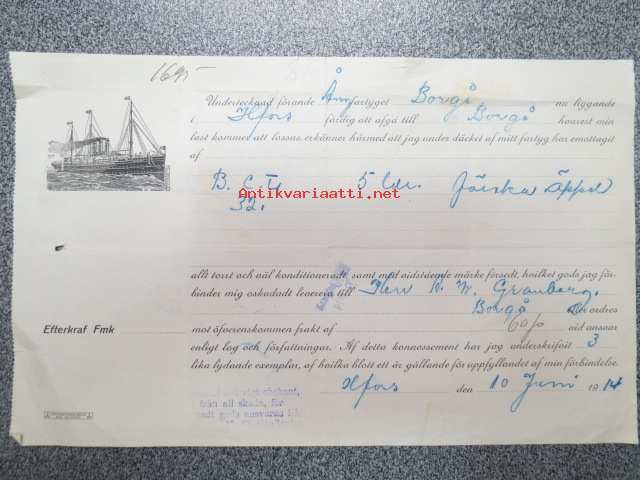 1695
Undertecknad förande Ångfartyget Borgå nu liggande
i Hfors färdig att afgå till Borgå hvarest min
last kommer att lossas, erkänner härmed att jag under däcket af mitt fartyg har emottagit
af
B. C. 5 Färska Äppel
32.
Antikvariaatti.net
allt torrt och väl konditioneradt samt med vidstående märke försedt, hvilket gods jag för-
binder mig oskadadt leverera till Herr K. W. Granberg,
Borgå ordres
Efterkraf Fmk
mot öfverenskommen frakt af 60 p vid ansvar
enligt lag och författningar. Af detta konnossement har jag underskrifvit 3
lika lydande exemplar, af hvilka blott ett är gällande för uppfyllandet af min förbindelse.
Hfors den 10 Juni 1914
från all skada, för
gods ansvaras